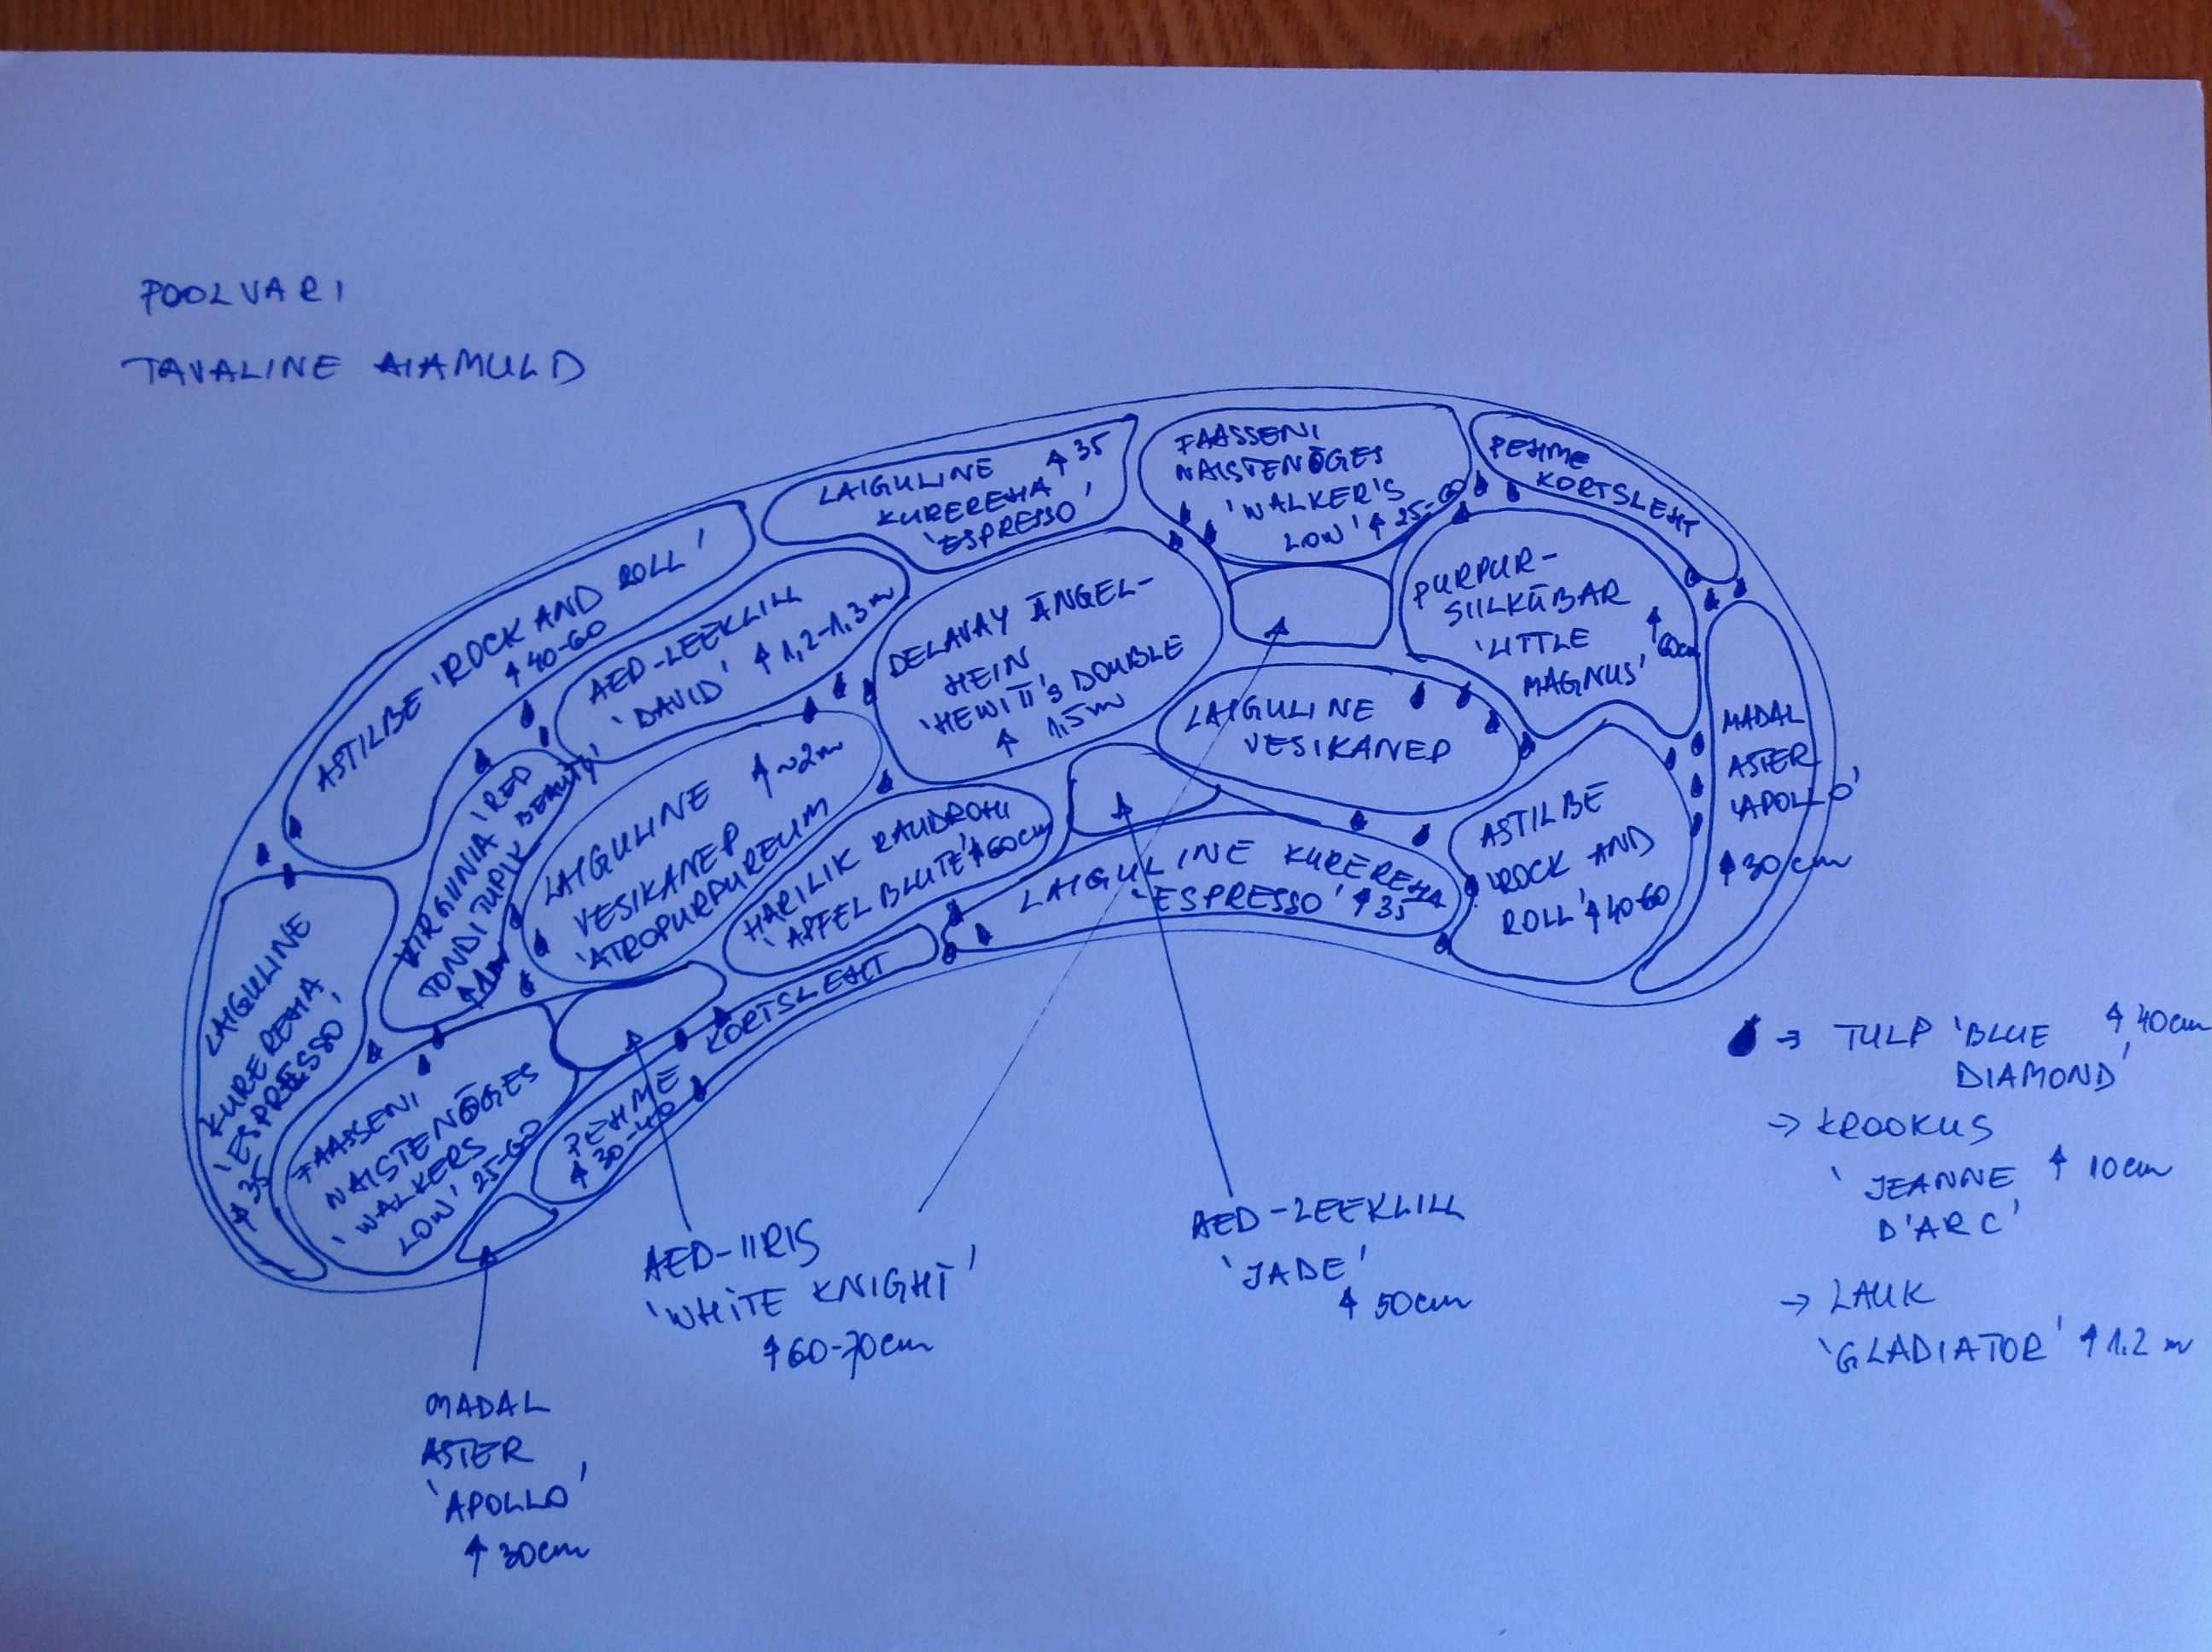 POOLVARI
TAVALINE AIAMULD
ASTILBE 'ROCK AND ROLL'
↑ 40-60
LAIGULINE ↑ 35
KUREREHA
'ESPRESSO'
FAASSENI
NAISTENÕGES
'WALKER'S
LOW' ↑ 25-60
PEHME
KORTSLEHT
AED-LEEKLILL
'DAVID' ↑ 1,2-1,3 m
DELAVAY ÄNGEL-
HEIN
'HEWITT'S DOUBLE
↑ 1,5 m
PURPUR-
SIILKÜBAR
'LITTLE
MAGNUS' ↑ 60cm
LAIGULINE
VESIKANEP
MADAL
ASTER
'APOLLO'
↑ 30 cm
VIRGIINIA 'RED
TONDITUPIK BEAUTY'
↑ 1m
LAIGULINE ↑ ~2m
VESIKANEP
'ATROPURPUREUM
HARILIK RAUDROHI
'APFELBLUTE' ↑ 60cm
LAIGULINE KUREREHA
'ESPRESSO' ↑ 35
ASTILBE
'ROCK AND
ROLL' ↑ 40-60
LAIGULINE
KUREREHA
'ESPRESSO'
↑ 35
FAASSENI
NAISTENÕGES
'WALKERS
LOW' 25-60
PEHME KORTSLEHT
↑ 30-40
MADAL
ASTER
'APOLLO'
↑ 30cm
AED-IIRIS
'WHITE KNIGHT'
↑ 60-70cm
AED-LEEKLILL
'JADE'
↑ 50cm
→ TULP 'BLUE ↑ 40cm
DIAMOND'
→ KROOKUS
'JEANNE ↑ 10cm
D'ARC'
→ LAUK
'GLADIATOR' ↑ 1.2 m